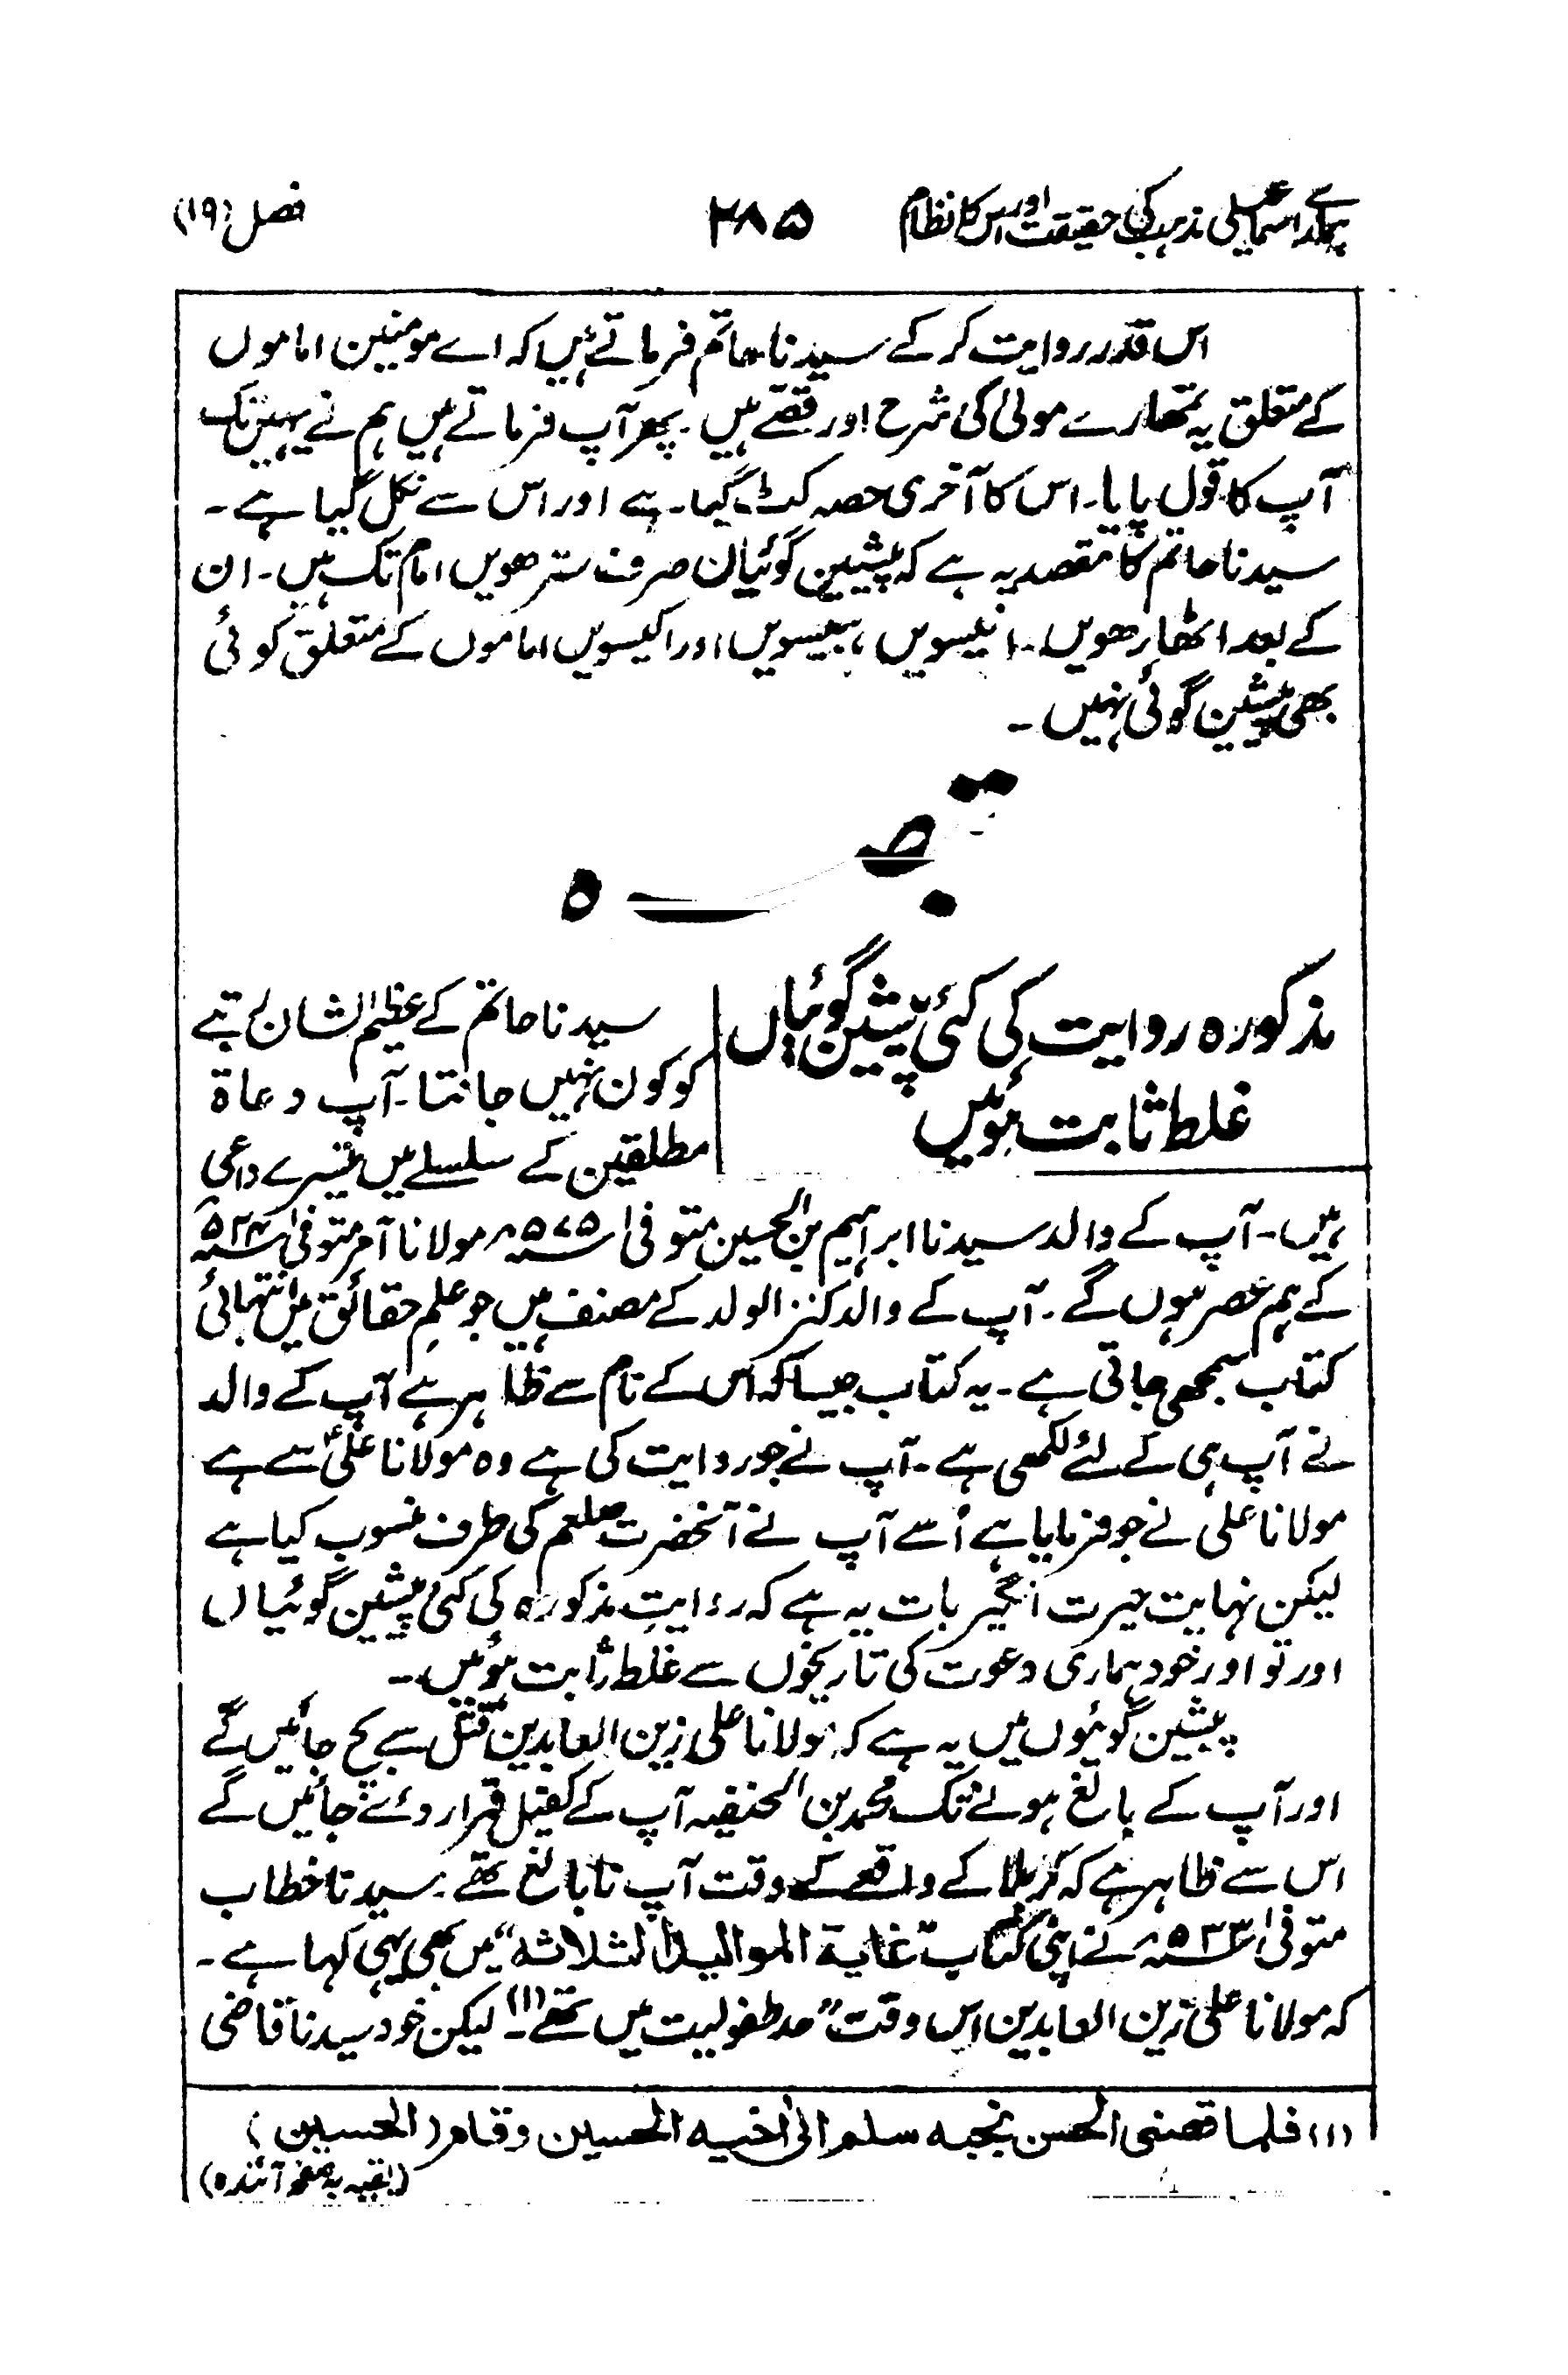 ہمارے اسماعیلی مذہب کی حقیقت اور اس کا نظام ۲۸۵ فصل (۱۹)
اس قدر روایت کر کے سیدنا حاتم فرماتے ہیں کہ اے مومنین اماموں
کے متعلق یہ تمھارے مولیٰ کی شرح اور قصّے ہیں۔ پھر آپ فرماتے ہیں ہم نے یہیں تک
آپ کا قول پایا۔ اس کا آخری حصہ کٹ گیا۔ ہے اور اس سے نکل گیا ہے۔
سیدنا حاتم کا مقصد یہ ہے کہ پیشین گوئیاں صرف سترھویں امام تک ہیں۔ ان
کے بعد اٹھارھویں۔ انیسویں، بیسویں اور اکیسویں اماموں کے متعلق کوئی
بھی پیشین گوئی نہیں۔
تبصرہ
مذکورہ روایت کی کئی پیشین گوئیاں
غلط ثابت ہوئیں
سیدنا حاتم کے عظیم الشان رُتبے
کو کون نہیں جانتا۔ آپ دعاۃ
مطلقین کے سلسلے میں تیسرے داعی
ہیں۔ آپ کے والد سیدنا ابراہیم بن الحسین متوفیٰ ۵۵۷ھ مولانا آمر متوفیٰ ۵۲۴ھ
کے ہم عصر ہوں گے۔ آپ کے والد کنز الولد کے مصنف ہیں جو علمِ حقائق میں انتہائی
کتاب سمجھی جاتی ہے۔ یہ کتاب جیسا کہ اس کے نام سے ظاہر ہے آپ کے والد
نے آپ ہی کے لئے لکھی ہے۔ آپ نے جو روایت کی ہے وہ مولانا علیؑ سے ہے
مولانا علی نے جو فرمایا ہے اُسے آپ نے آنحضرت صلعم کی طرف منسوب کیا ہے
لیکن نہایت حیرت انگیز بات یہ ہے کہ روایتِ مذکورہ کی کئی پیشین گوئیاں
اور تو اور خود ہماری دعوت کی تاریخوں سے غلط ثابت ہوئیں۔
پیشین گوئیوں میں یہ ہے کہ مولانا علی زین العابدین قتل سے بچ جائیں گے
اور آپ کے بالغ ہونے تک محمد بن الحنفیہ آپ کے کفیل قرار دئے جائیں گے
اس سے ظاہر ہے کہ کربلا کے واقعے کے وقت آپ نا بالغ تھے۔ سیدنا خطاب
متوفیٰ ۵۳۳ھ نے اپنی کتاب "غایۃ الموالید الثلاثہ" میں بھی یہی کہا ہے۔
کہ مولانا علی زین العابدین اس وقت "حد طفولیت میں تھے۔(۱) لیکن خود سیدنا قاضی
(۱) فلما قضی الحسن نحبہ سلم الیٰ اخیہ الحسین وقام (الحسین)
(بقیہ بہ صفحہ آئندہ)